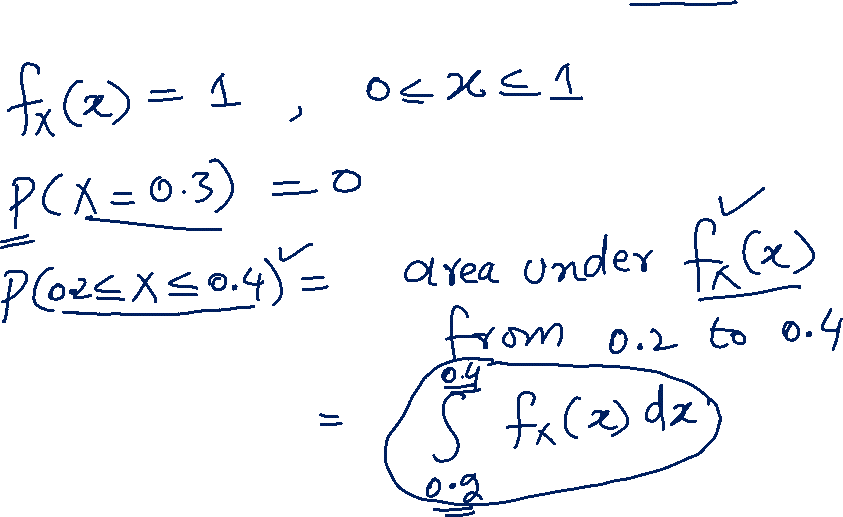 fₓ(x) = 1 , 0 ≤ x ≤ 1
P(X = 0.3) = 0
P(0.2 ≤ X ≤ 0.4) ✓ = area under fₓ(x) ✓
from 0.2 to 0.4
= ∫_{0.2}^{0.4} fₓ(x) dx